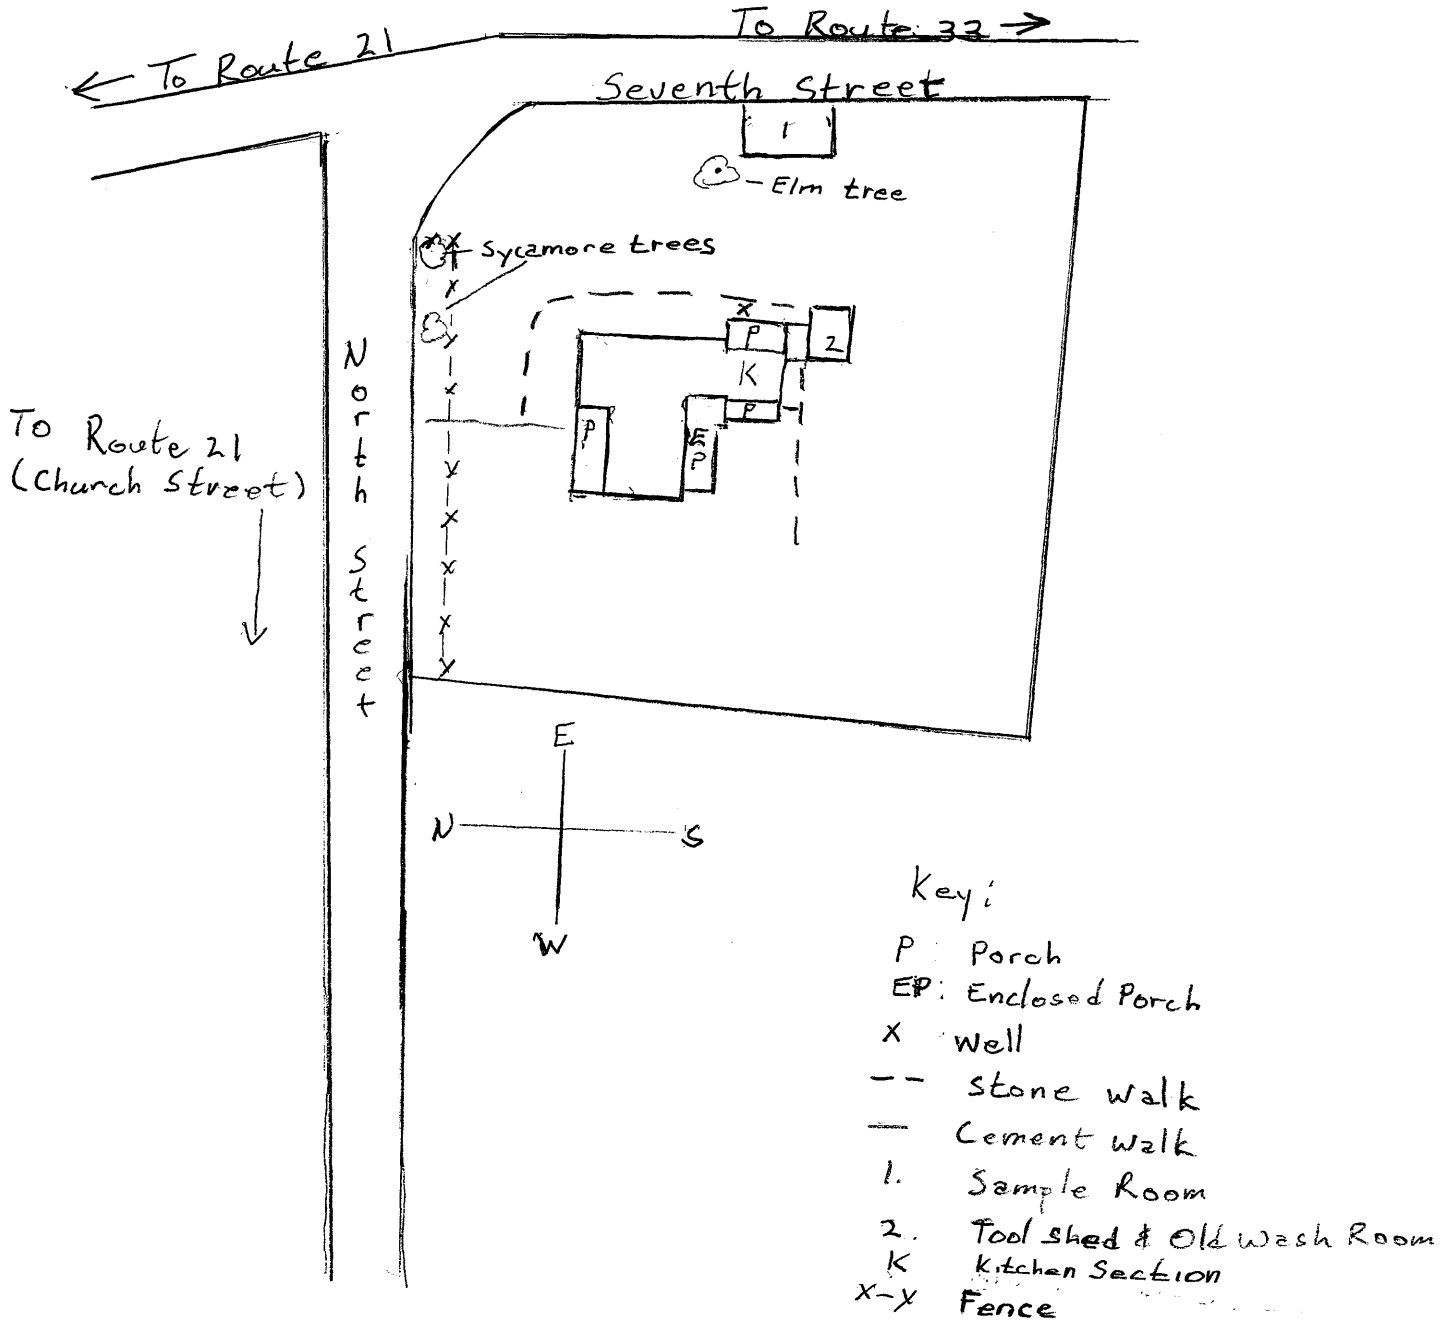 To Route 33 →
← To Route 21
Seventh Street
1
Elm tree
Sycamore trees
X
P
2
K
P
P
EP
North Street
To Route 21
(Church Street)
E
N
S
W
Key:
P : Porch
EP: Enclosed Porch
X Well
-- Stone Walk
— Cement Walk
1. Sample Room
2. Tool shed & Old Wash Room
K Kitchen Section
X-X Fence